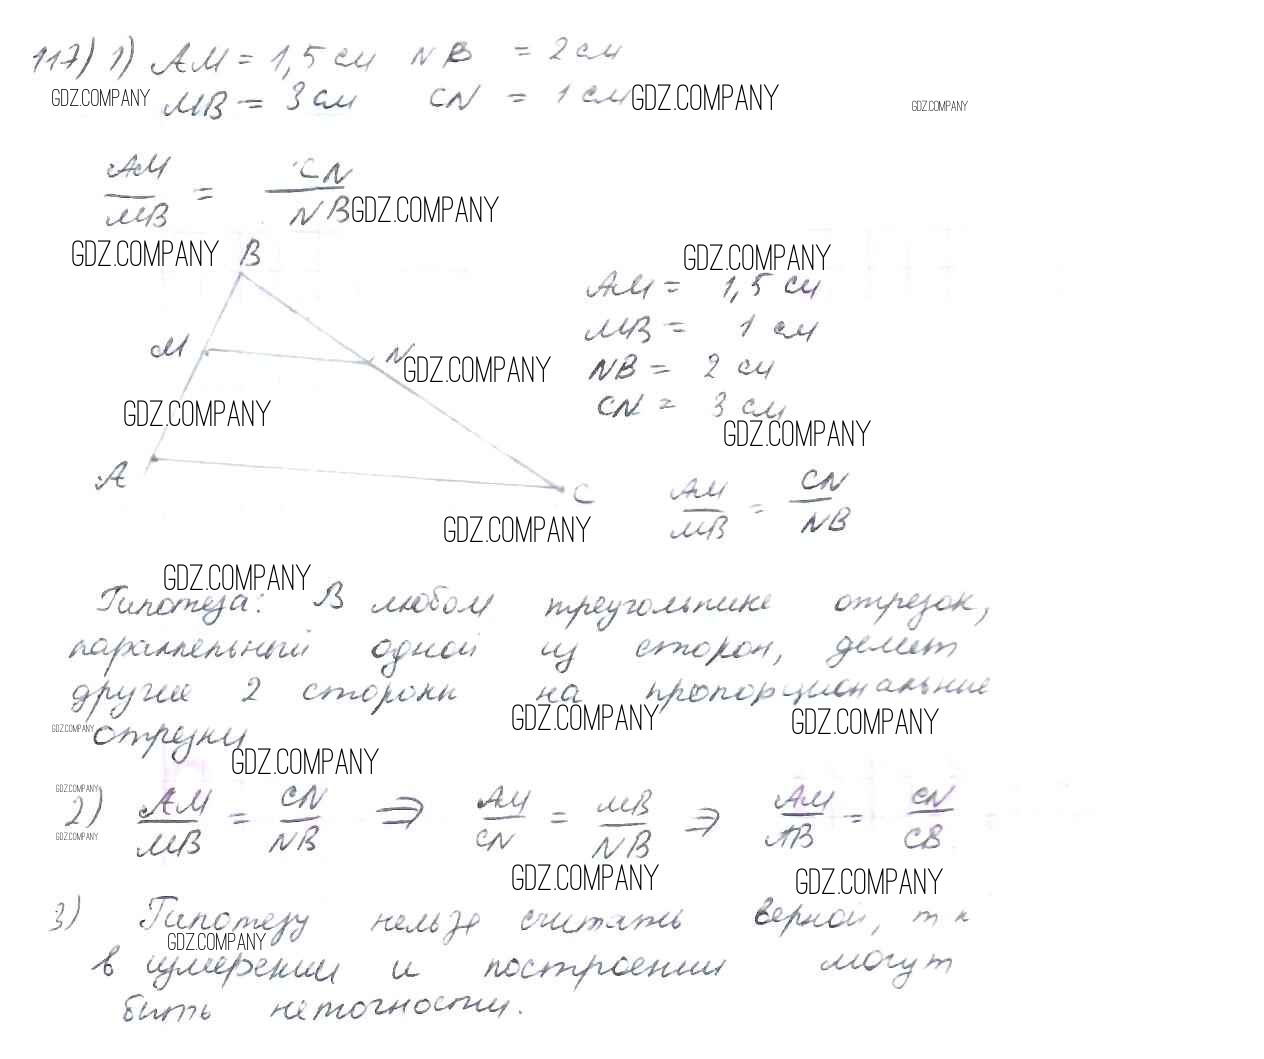 117) 1) AM = 1,5 см NB = 2 см
GDZ.COMPANY MB = 3 см CN = 1 см GDZ.COMPANY GDZ.COMPANY
AM/MB = CN/NB GDZ.COMPANY
GDZ.COMPANY B GDZ.COMPANY
AM = 1,5 см
M MB = 1 см
N GDZ.COMPANY NB = 2 см
GDZ.COMPANY CN = 3 см
GDZ.COMPANY
A C AM/MB = CN/NB
GDZ.COMPANY
GDZ.COMPANY
Гипотеза: В любом треугольнике отрезок,
параллельный одной из сторон, делит
другие 2 стороны на пропорциональные
GDZ.COMPANY GDZ.COMPANY
GDZ.COMPANY отрезки
GDZ.COMPANY
GDZ.COMPANY
2) AM/MB = CN/NB ⇒ AM/CN = MB/NB ⇒ AM/AB = CN/CB
GDZ.COMPANY
GDZ.COMPANY GDZ.COMPANY
3) Гипотезу нельзя считать верной, т к
GDZ.COMPANY
в измерении и построении могут
быть неточности.